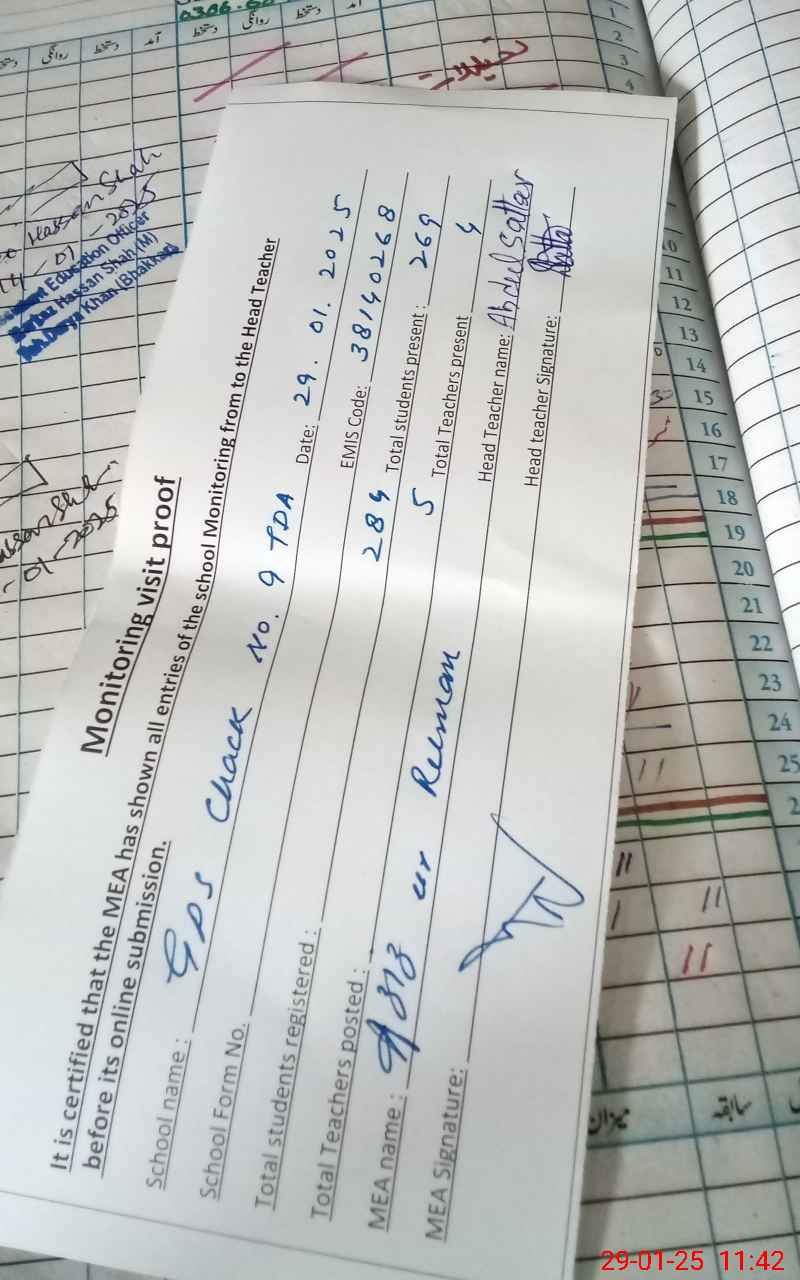 Monitoring visit proof
It is certified that the MEA has shown all entries of the school Monitoring from to the Head Teacher
before its online submission.
School name: GPS Chack No. 9 TDA Date: 29.01.2025
School Form No. EMIS Code: 38140268
Total students registered: 284 Total students present: 269
Total Teachers posted: 5 Total Teachers present 4
MEA name: Aziz ur Rehman Head Teacher name: Abdul Sattar
MEA Signature: Head teacher Signature:
Hassan Shah
01-2025
Education Officer
Hassan Shah (M)
Darya Khan (Bhakkar)
01-2025
آمد
دستخط
روانگی
دستخط
روانگی
دستخط
آمد
تعطیلات
1
2
3
4
10
11
12
13
14
15
16
17
18
19
20
21
22
23
24
25
میزان
سابقہ
29-01-25 11:42